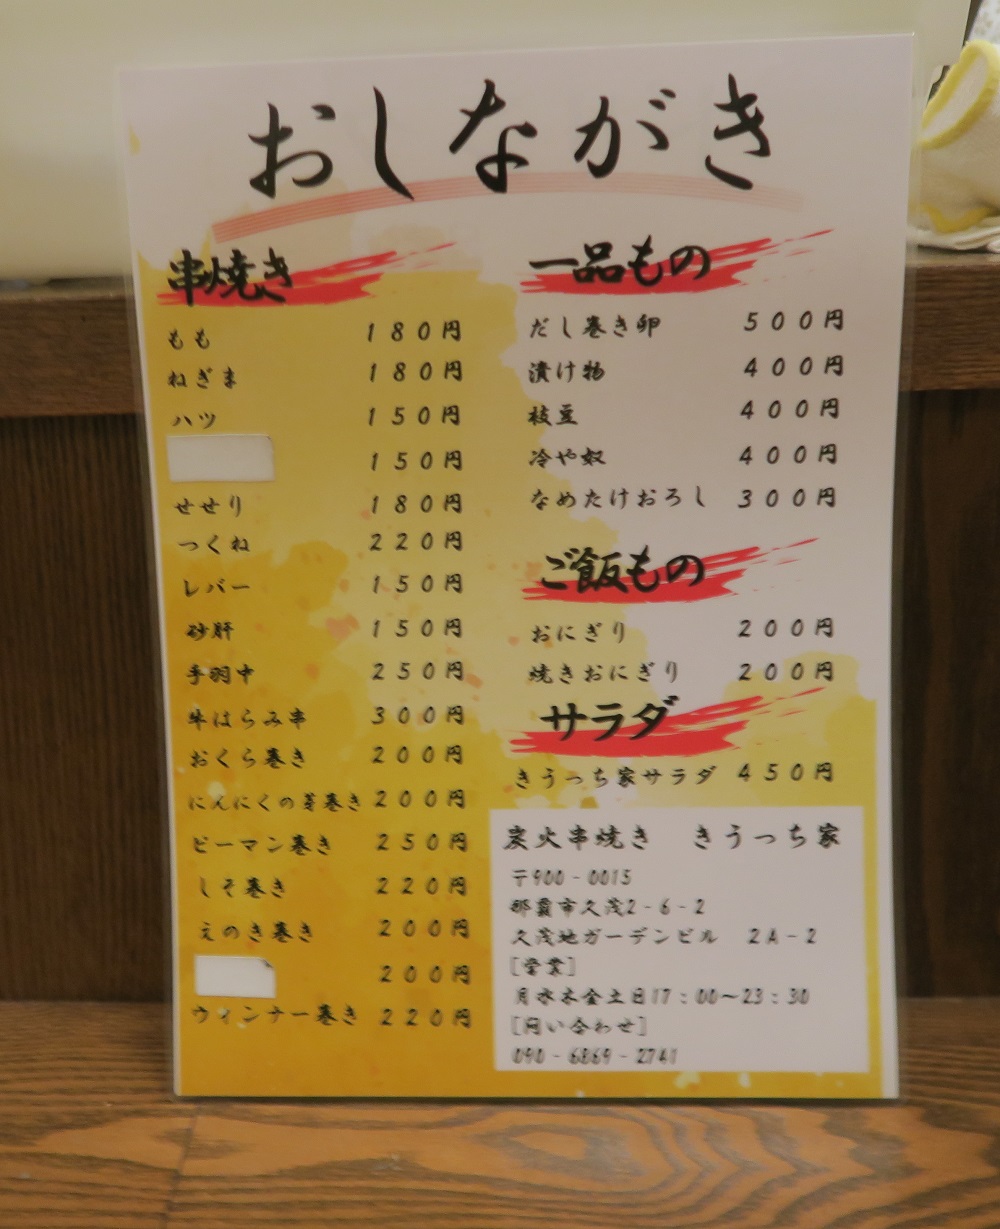 おしながき
串焼き
もも 180円
ねぎま 180円
ハツ 150円
150円
せせり 180円
つくね 220円
レバー 150円
砂肝 150円
手羽中 250円
牛はらみ串 300円
おくら巻き 200円
にんにくの芽巻き 200円
ピーマン巻き 250円
しそ巻き 220円
えのき巻き 200円
200円
ウィンナー巻き 220円
一品もの
だし巻き卵 500円
漬け物 400円
枝豆 400円
冷や奴 400円
なめたけおろし 300円
ご飯もの
おにぎり 200円
焼きおにぎり 200円
サラダ
きうっち家サラダ 450円
炭火串焼き きうっち家
〒900-0015
那覇市久茂2-6-2
久茂地ガーデンビル 2A-2
[営業]
月水木金土日17:00～23:30
[問い合わせ]
090-6869-2741